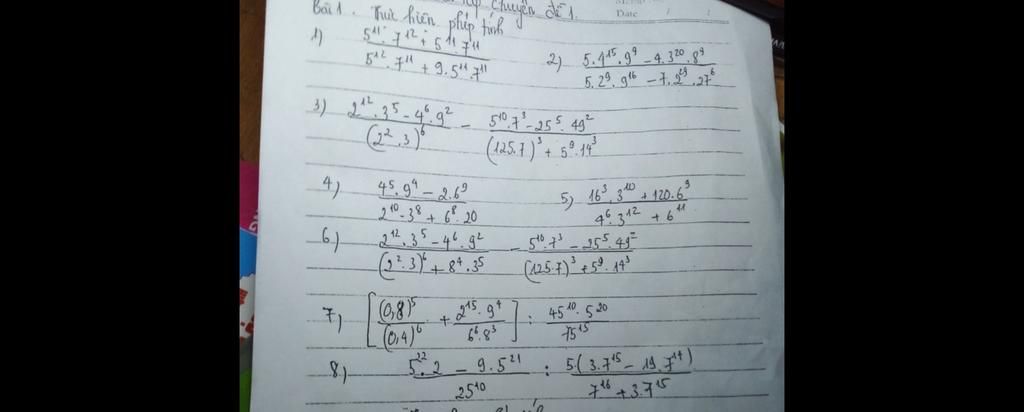 chuyên đề 1.
Date / /
Bài 1. Thực hiện phép tính
1) (5¹¹.7¹² + 5¹¹.7¹¹)/(5¹².7¹¹ + 9.5¹¹.7¹¹) 2) (5.4¹⁵.9⁹ - 4.3²⁰.8⁹)/(5.2⁹.9¹⁶ - 7.2²⁹.27⁶)
3) (2¹².3⁵ - 4⁶.9²)/(2².3)⁶ - (5¹⁰.7³ - 25⁵.49²)/((125.7)³ + 5⁹.14³)
4) (4⁵.9⁴ - 2.6⁹)/(2¹⁰.3⁸ + 6⁸.20) 5) (16³.3¹⁰ + 120.6⁹)/(4⁶.3¹² + 6¹¹)
6) (2¹².3⁵ - 4⁶.9²)/((2².3)⁶ + 8⁴.3⁵) - (5¹⁰.7³ - 25⁵.49²)/((125.7)³ + 5⁹.14³)
7) [(0,8)⁵/(0,4)⁶ + (2¹⁵.9⁴)/(6⁶.8³)] : (45¹⁰.5²⁰)/75¹⁵
8) (5²².2 - 9.5²¹)/25¹⁰ : 5(3.7¹⁵ - 19.7¹⁴)/(7¹⁶ + 3.7¹⁵)